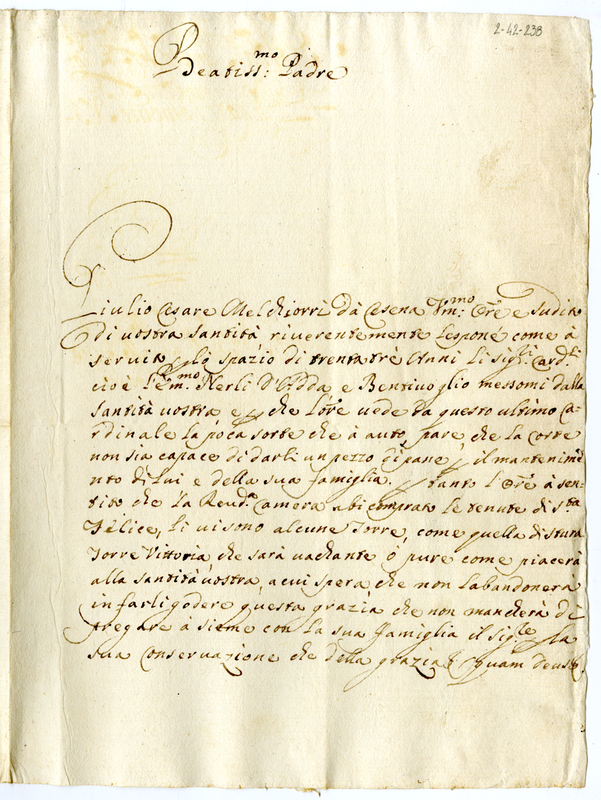 2-42-238
Beatiss:mo Padre
Giulio Cesare Melchiorri da Cesena Um:mo Ore e Sudito
di vostra Santità riverentemente l'espone come à
servito p lo spazio di trentatrè Anni li sig:ri Card:li
cioè l'Em:mo Nerli D'Adda e Bentivoglio messomi dalla
Santità vostra e p che l'Ore vede da questo ultimo Ca-
rdinale la poca sorte che à auto, pare che la corte
non sia capace di darli un pezzo di pane p il mantenime
nto di lui e della sua famiglia. p tanto l'Ore à sen-
tito che la Revd:a Camera abi comprato le tenute di S:ta
Felice, li vi sono alcune Torre, come quella di stura
Torre Vittoria che sarà vachante ò pure come piacerà
alla Santità vostra, a cui spera che non l'abandonerà
in farli godere questa grazia che non mancherà di
pregare à sieme con la sua famiglia il sig:re p la
sua conservazione che della grazia quam deus